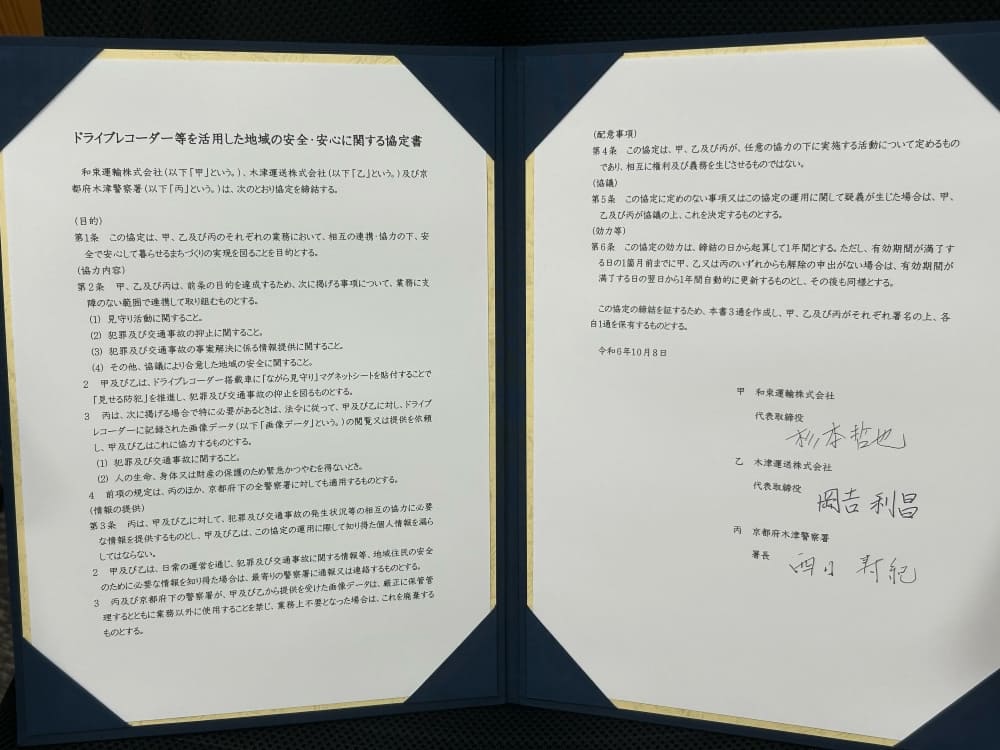 ドライブレコーダー等を活用した地域の安全・安心に関する協定書
和束運輸株式会社(以下「甲」という。)、木津運送株式会社(以下「乙」という。)及び京
都府木津警察署(以下「丙」という。)は、次のとおり協定を締結する。
(目的)
第1条 この協定は、甲、乙及び丙のそれぞれの業務において、相互の連携・協力の下、安
全で安心して暮らせるまちづくりの実現を図ることを目的とする。
(協力内容)
第2条 甲、乙及び丙は、前条の目的を達成するため、次に掲げる事項について、業務に支
障のない範囲で連携して取り組むものとする。
(1) 見守り活動に関すること。
(2) 犯罪及び交通事故の抑止に関すること。
(3) 犯罪及び交通事故の事案解決に係る情報提供に関すること。
(4) その他、協議により合意した地域の安全に関すること。
2 甲及び乙は、ドライブレコーダー搭載車に「ながら見守り」マグネットシートを貼付することで
「見せる防犯」を推進し、犯罪及び交通事故の抑止を図るものとする。
3 丙は、次に掲げる場合で特に必要があるときは、法令に従って、甲及び乙に対し、ドライブ
レコーダーに記録された画像データ(以下「画像データ」という。)の閲覧又は提供を依頼
し、甲及び乙はこれに協力するものとする。
(1) 犯罪及び交通事故に関すること。
(2) 人の生命、身体又は財産の保護のため緊急かつやむを得ないとき。
4 前項の規定は、丙のほか、京都府下の全警察署に対しても適用するものとする。
(情報の提供)
第3条 丙は、甲及び乙に対して、犯罪及び交通事故の発生状況等の相互の協力に必要
な情報を提供するものとし、甲及び乙は、この協定の運用に際して知り得た個人情報を漏ら
してはならない。
2 甲及び乙は、日常の運営を通じ、犯罪及び交通事故に関する情報等、地域住民の安全
のために必要な情報を知り得た場合は、最寄りの警察署に通報又は連絡するものとする。
3 丙及び京都府下の警察署が、甲及び乙から提供を受けた画像データは、厳正に保管管
理するとともに業務以外に使用することを禁じ、業務上不要となった場合は、これを廃棄する
ものとする。
(配意事項)
第4条 この協定は、甲、乙及び丙が、任意の協力の下に実施する活動について定めるもの
であり、相互に権利及び義務を生じさせるものではない。
(協議)
第5条 この協定に定めのない事項又はこの協定の運用に関して疑義が生じた場合は、甲、
乙及び丙が協議の上、これを決定するものとする。
(効力等)
第6条 この協定の効力は、締結の日から起算して1年間とする。ただし、有効期間が満了す
る日の1箇月前までに甲、乙又は丙のいずれからも解除の申出がない場合は、有効期間が
満了する日の翌日から1年間自動的に更新するものとし、その後も同様とする。
この協定の締結を証するため、本書3通を作成し、甲、乙及び丙がそれぞれ署名の上、各
自1通を保有するものとする。
令和6年10月8日
甲 和束運輸株式会社
代表取締役
杉本哲也
乙 木津運送株式会社
代表取締役
岡吉利昌
丙 京都府木津警察署
署長
西口寿紀